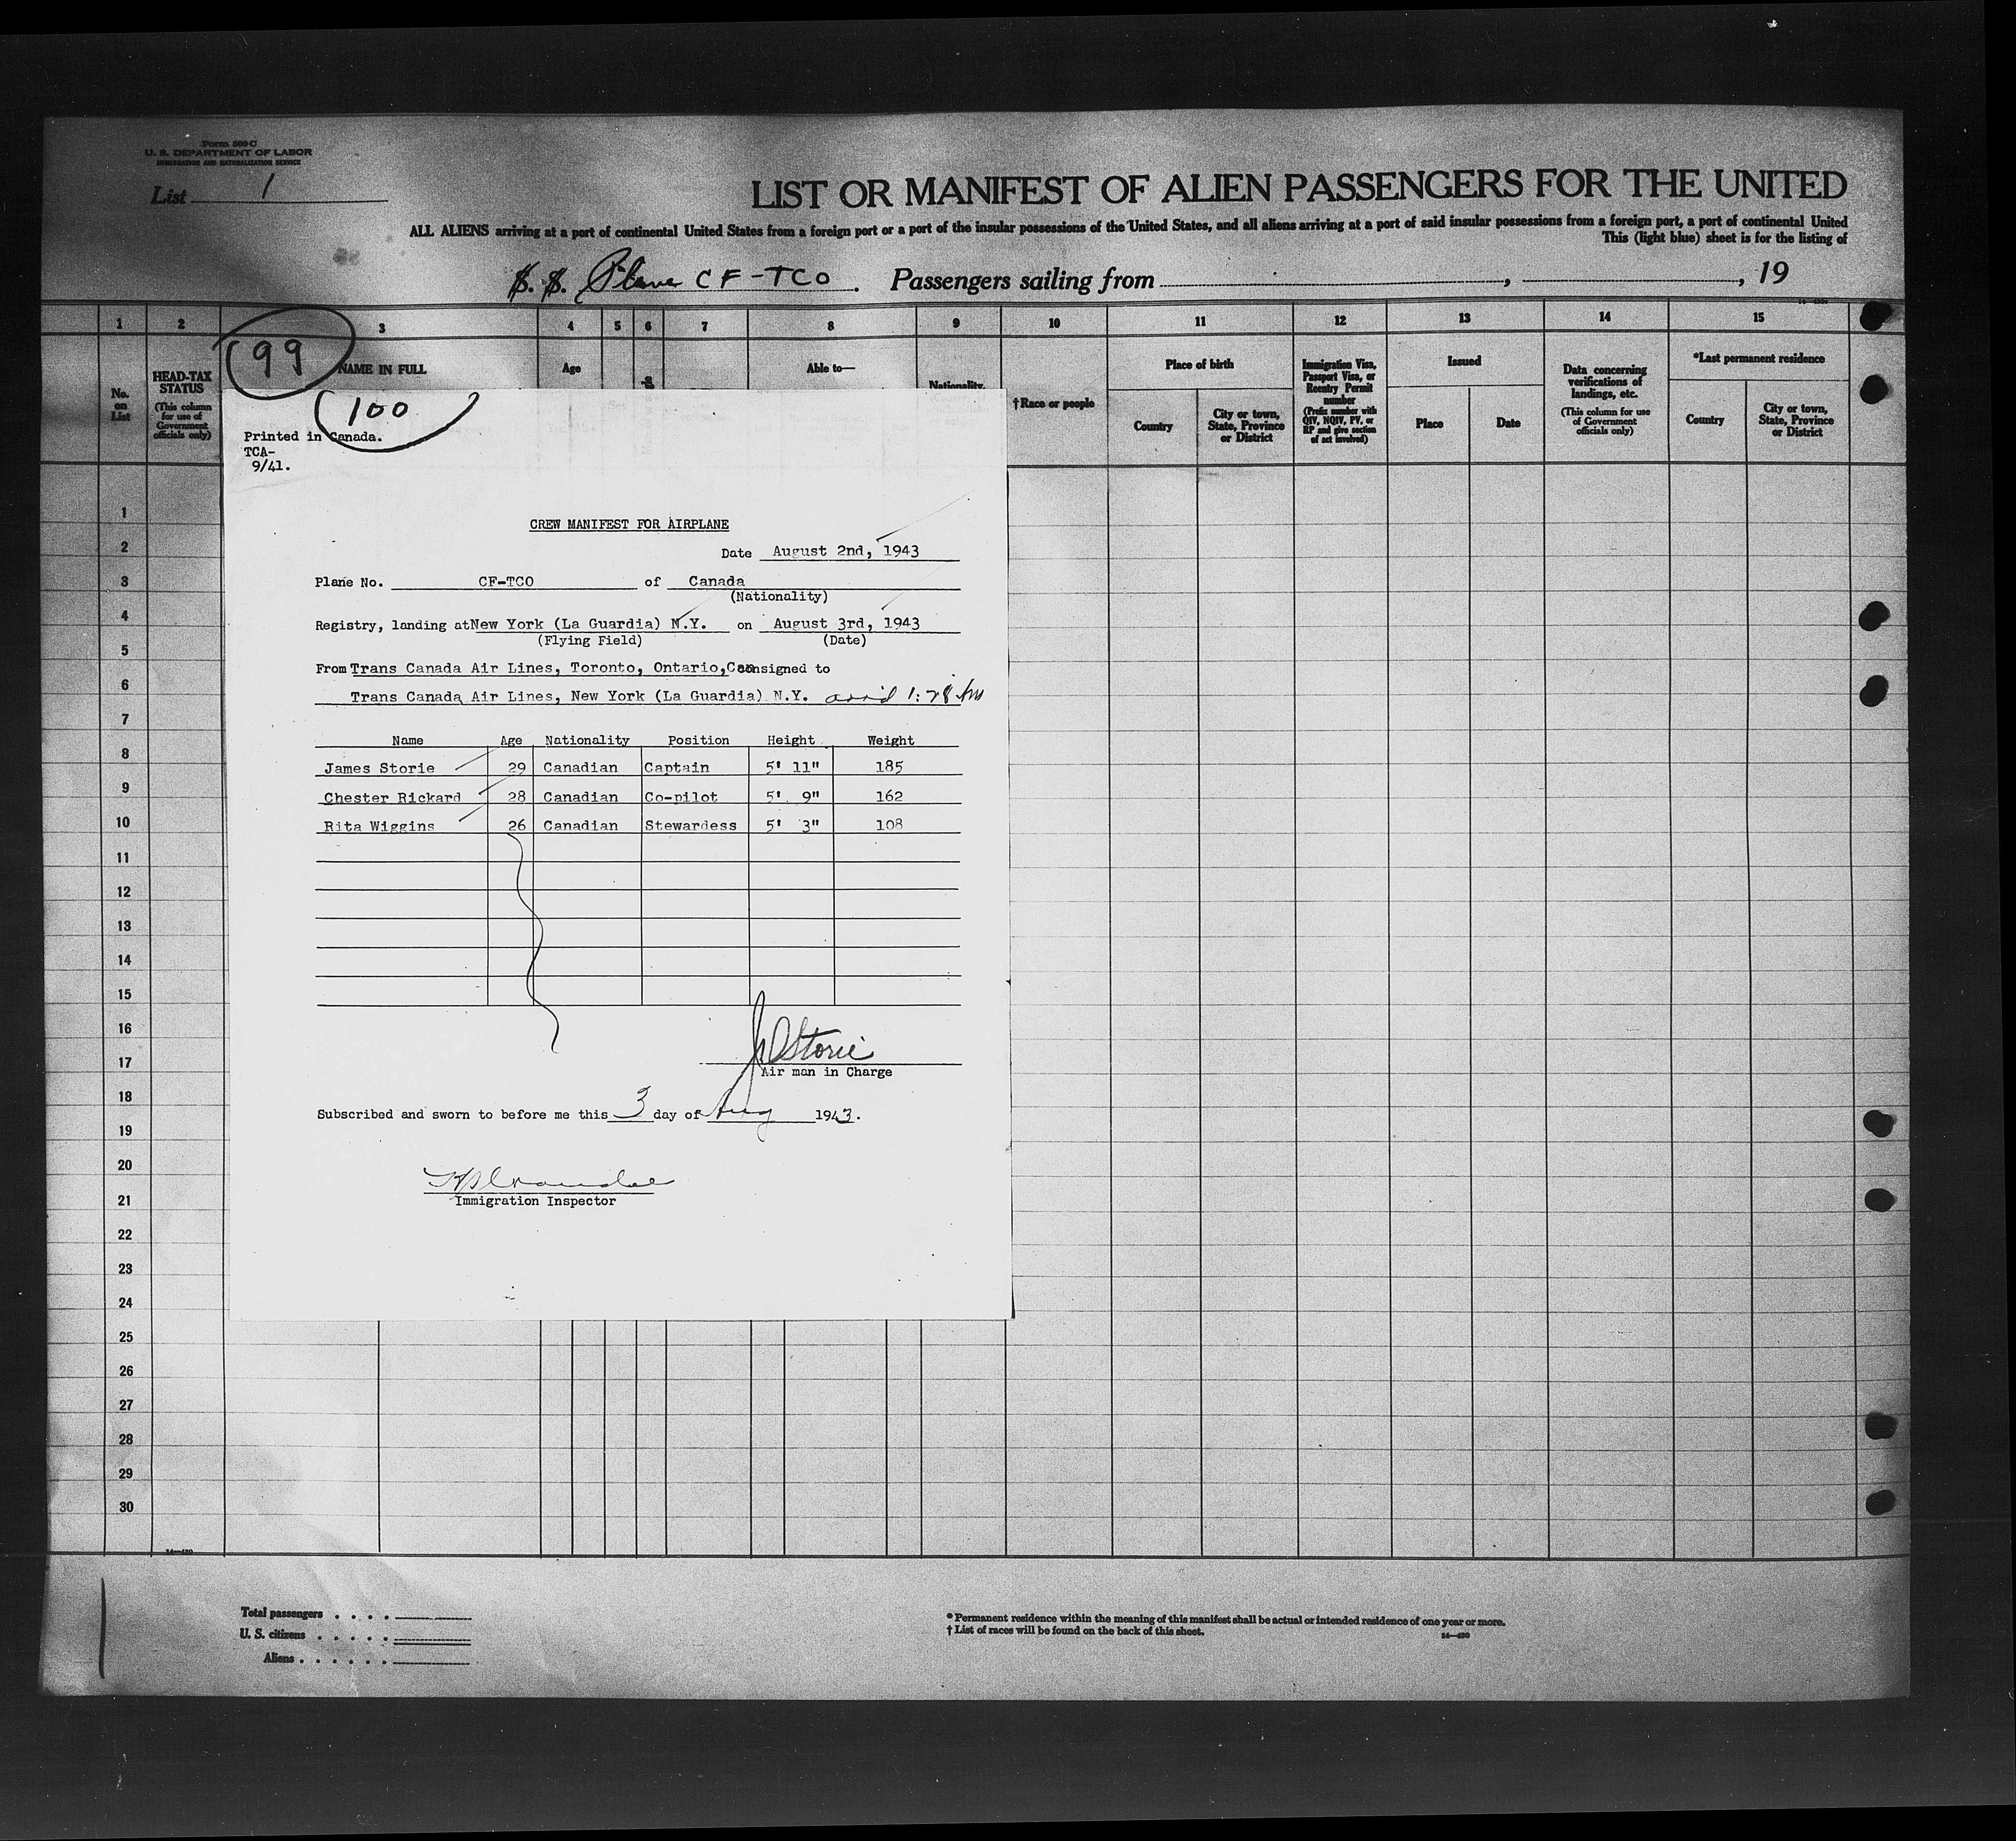 Form 500 C
U. S. DEPARTMENT OF LABOR
IMMIGRATION AND NATURALIZATION SERVICE
List 1
LIST OR MANIFEST OF ALIEN PASSENGERS FOR THE UNITED
ALL ALIENS arriving at a port of continental United States from a foreign port or a port of the insular possessions of the United States, and all aliens arriving at a port of said insular possessions from a foreign port, a port of continental United
This (light blue) sheet is for the listing of
S. S. Plane CF-TCO. Passengers sailing from , , 19
1 2 3 4 5 6 7 8 9 10 11 12 13 14 15
99
No. on List
HEAD-TAX STATUS
(This column for use of Government officials only)
NAME IN FULL
Age
Able to—
Nationality.
†Race or people
Place of birth
Country
City or town, State, Province or District
Immigration Visa, Passport Visa, or Reentry Permit number
(Prefix number with QIV, NQIV, PV, or RP and give section of act involved)
Issued
Place
Date
Data concerning verifications of landings, etc.
(This column for use of Government officials only)
*Last permanent residence
Country
City or town, State, Province or District
100
Printed in Canada.
TCA-
9/41.
CREW MANIFEST FOR AIRPLANE
Date August 2nd, 1943
Plane No. CF-TCO of Canada
(Nationality)
Registry, landing at New York (La Guardia) N.Y. on August 3rd, 1943
(Flying Field) (Date)
From Trans Canada Air Lines, Toronto, Ontario, Can consigned to
Trans Canada Air Lines, New York (La Guardia) N.Y. arr'd 1:28 AM
Name Age Nationality Position Height Weight
James Storie 29 Canadian Captain 5' 11" 185
Chester Rickard 28 Canadian Co-pilot 5' 9" 162
Rita Wiggins 26 Canadian Stewardess 5' 3" 108
Storie
Air man in Charge
Subscribed and sworn to before me this 3 day of Aug 1943.
Immigration Inspector
1
2
3
4
5
6
7
8
9
10
11
12
13
14
15
16
17
18
19
20
21
22
23
24
25
26
27
28
29
30
Total passengers . . . .
U. S. citizens . . . . .
Aliens . . . . . .
* Permanent residence within the meaning of this manifest shall be actual or intended residence of one year or more.
† List of races will be found on the back of this sheet.